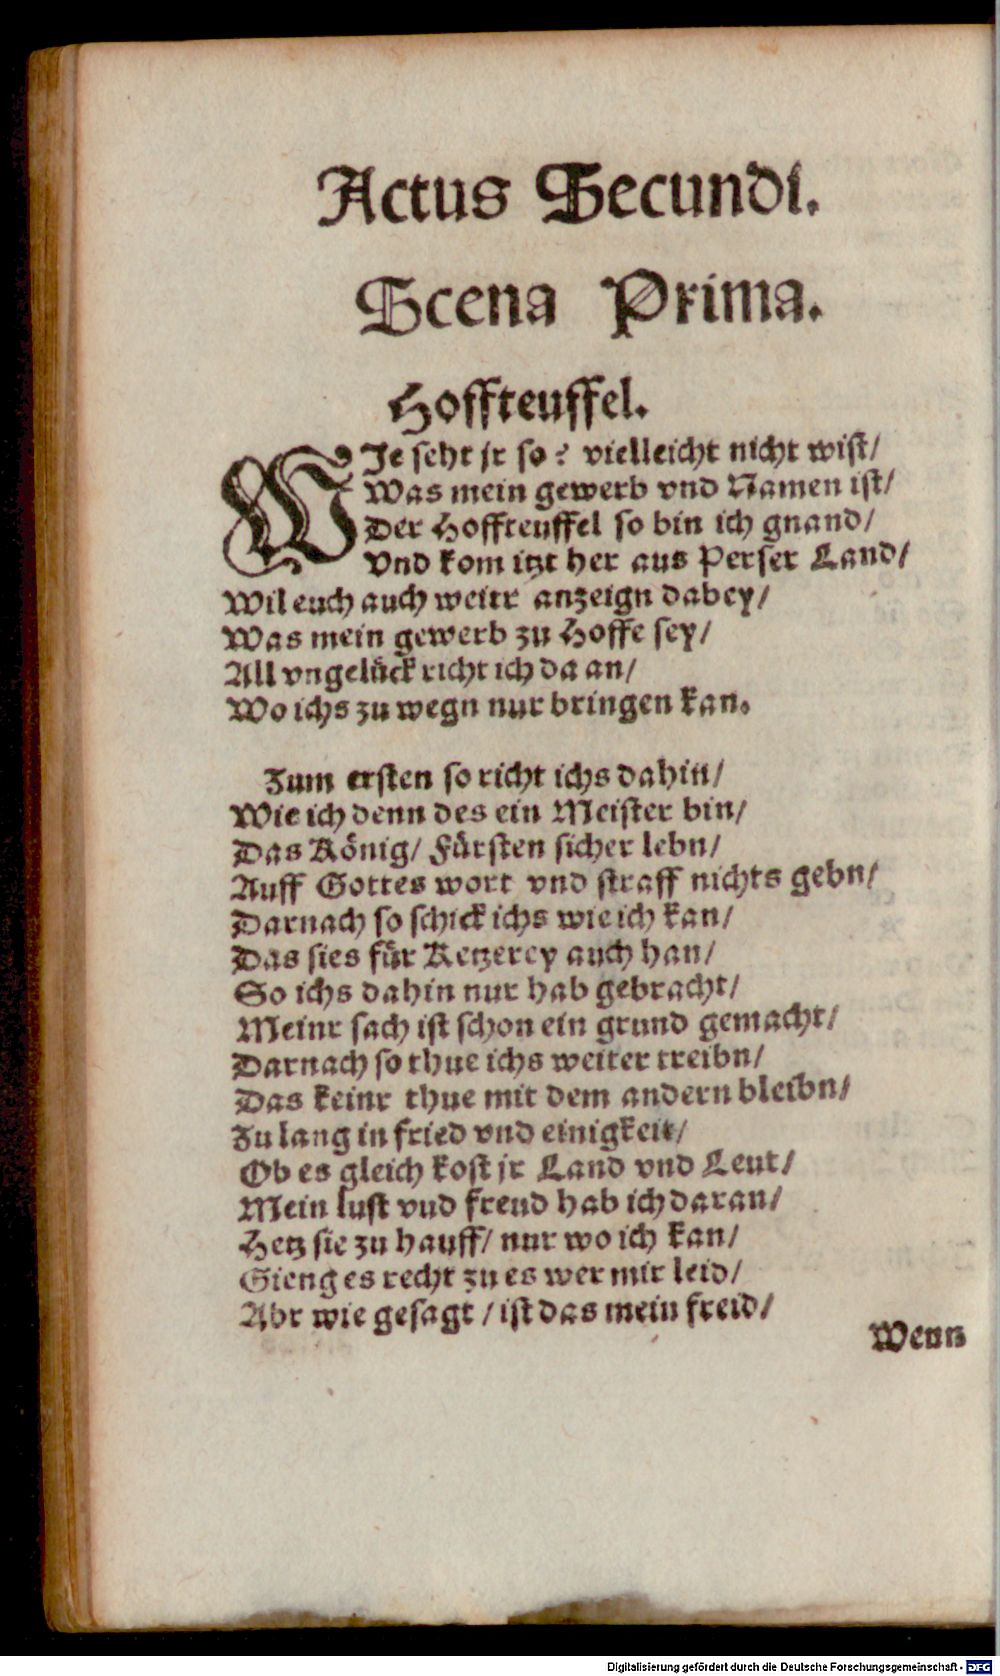 Actus Secundi.
Scena Prima.
Hoffteuffel.
WIe seht jr so? vielleicht nicht wist/
Was mein gewerb vnd Namen ist/
Der Hoffteuffel so bin ich gnand/
Vnd kom itzt her aus Perser Land/
Wil euch auch weitr anzeign dabey/
Was mein gewerb zu Hoffe sey/
All vngelück richt ich da an/
Wo ichs zu wegn nur bringen kan.
Zum ersten so richt ichs dahin/
Wie ich denn des ein Meister bin/
Das König/ Fürsten sicher lebn/
Auff Gottes wort vnd straff nichts gebn/
Darnach so schick ichs wie ich kan/
Das sies für Ketzerey auch han/
So ichs dahin nur hab gebracht/
Meinr sach ist schon ein grund gemacht/
Darnach so thue ichs weiter treibn/
Das keinr thue mit dem andern bleibn/
Zu lang in fried vnd einigkeit/
Ob es gleich kost jr Land vnd Leut/
Mein lust vnd freud hab ich daran/
Hetz sie zu hauff/ nur wo ich kan/
Gieng es recht zu es wer mir leid/
Abr wie gesagt / ist das mein freid/
Wenn
Digitalisierung gefördert durch die Deutsche Forschungsgemeinschaft - DFG